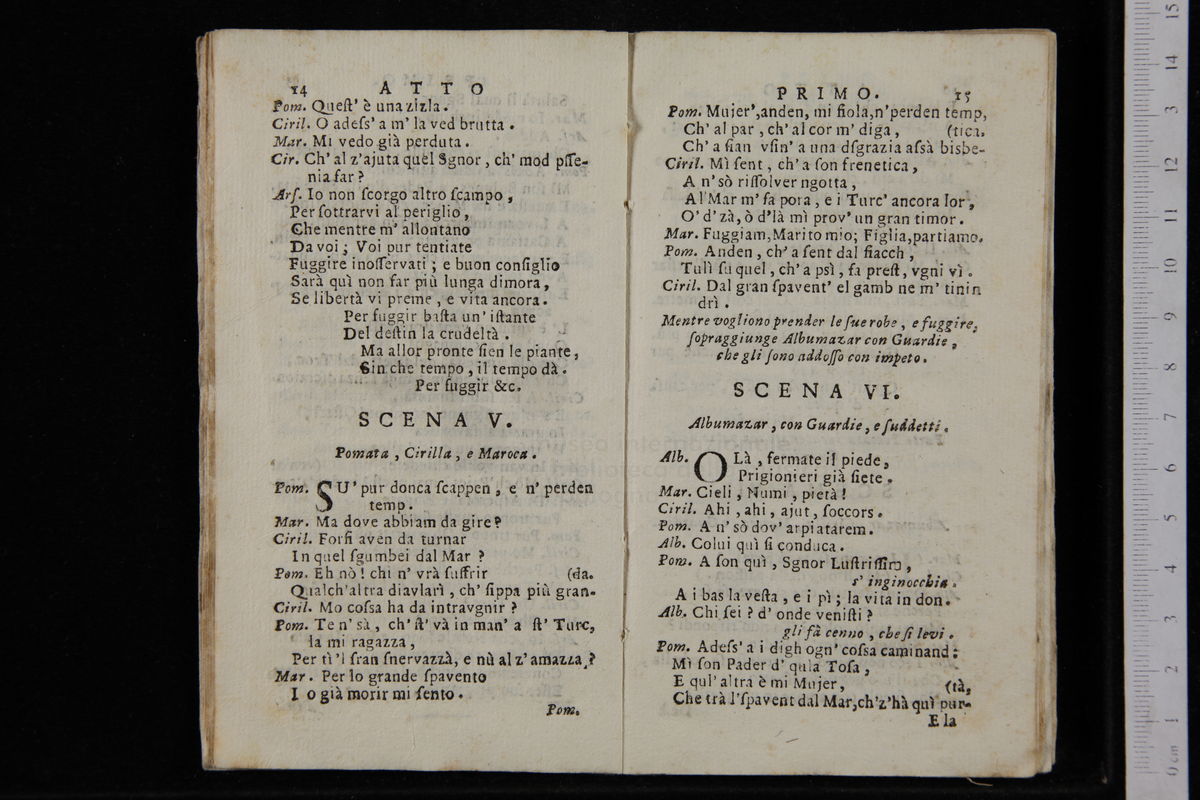 14 ATTO
Pom. Queſt' è una zizla.
Ciril. O adeſs' a m' la ved brutta.
Mar. Mi vedo già perduta.
Cir. Ch' al z'ajuta quel Sgnor, ch' mod pſſe-
nia far?
Arſ. Io non ſcorgo altro ſcampo,
Per ſottrarvi al periglio,
Che mentre m' allontano
Da voi; Voi pur tentiate
Fuggire inoſſervati; e buon conſiglio
Sarà quì non far più lunga dimora,
Se libertà vi preme, e vita ancora.
Per fuggir baſta un' iſtante
Del deſtin la crudeltà.
Ma allor pronte ſien le piante,
Sin che tempo, il tempo dà.
Per fuggir &c.
SCENA V.
Pomata, Cirilla, e Maroca.
Pom. SU' pur donca ſcappen, e n' perden
temp.
Mar. Ma dove abbiam da gire?
Ciril. Forſi aven da turnar
In quel ſgumbei dal Mar?
Pom. Eh nò! chi n' vrà ſuffrir (da.
Qualch'altra diavlarì, ch' ſippa più gran-
Ciril. Mo coſsa ha da intravgnir?
Pom. Te n' sà, ch' ſt' và in man' a ſt' Turc,
la mi ragazza,
Per tì 'l ſran ſnervazzà, e nù al z' amazza?
Mar. Per lo grande ſpavento
I o già morir mi ſento.
Pom.
PRIMO. 15
Pom. Mujer', anden, mi fiola, n' perden temp,
Ch' al par, ch' al cor m' diga, (tica.
Ch' a ſian vſin' a una dſgrazia aſsà bisbe-
Ciril. Mì ſent, ch' a ſon frenetica,
A n' sò riſſolver ngotta,
Al Mar m' fa pora, e i Turc' ancora lor,
O' d' zà, ò d'là mì prov' un gran timor.
Mar. Fuggiam, Marito mio; Figlia, partiamo.
Pom. Anden, ch' a ſent dal fiacch,
Tulì ſu quel, ch' a psì, fa preſt, vgni vì.
Ciril. Dal gran ſpavent' el gamb ne m' tinin
drì.
Mentre vogliono prender le ſue robe, e fuggire,
ſopraggiunge Albumazar con Guardie,
che gli ſono addoſſo con impeto.
SCENA VI.
Albumazar, con Guardie, e ſuddetti.
Alb. OLà, fermate il piede,
Prigionieri già ſiete.
Mar. Cieli, Numi, pietà!
Ciril. Ahi, ahi, ajut, ſoccors.
Pom. A n' sò dov' arpiatarem.
Alb. Colui quì ſi conduca.
Pom. A ſon quì, Sgnor Luſtriſſim,
s' inginocchia.
A i bas la veſta, e i pì; la vita in don.
Alb. Chi ſei? d' onde veniſti?
gli fà cenno, che ſi levi.
Pom. Adeſs' a i digh ogn' coſsa caminand:
Mì ſon Pader d' qula Toſa,
E qul' altra è mi Mujer, (tà,
Che trà l'ſpavent dal Mar, ch'z'hà quì pur-
E la